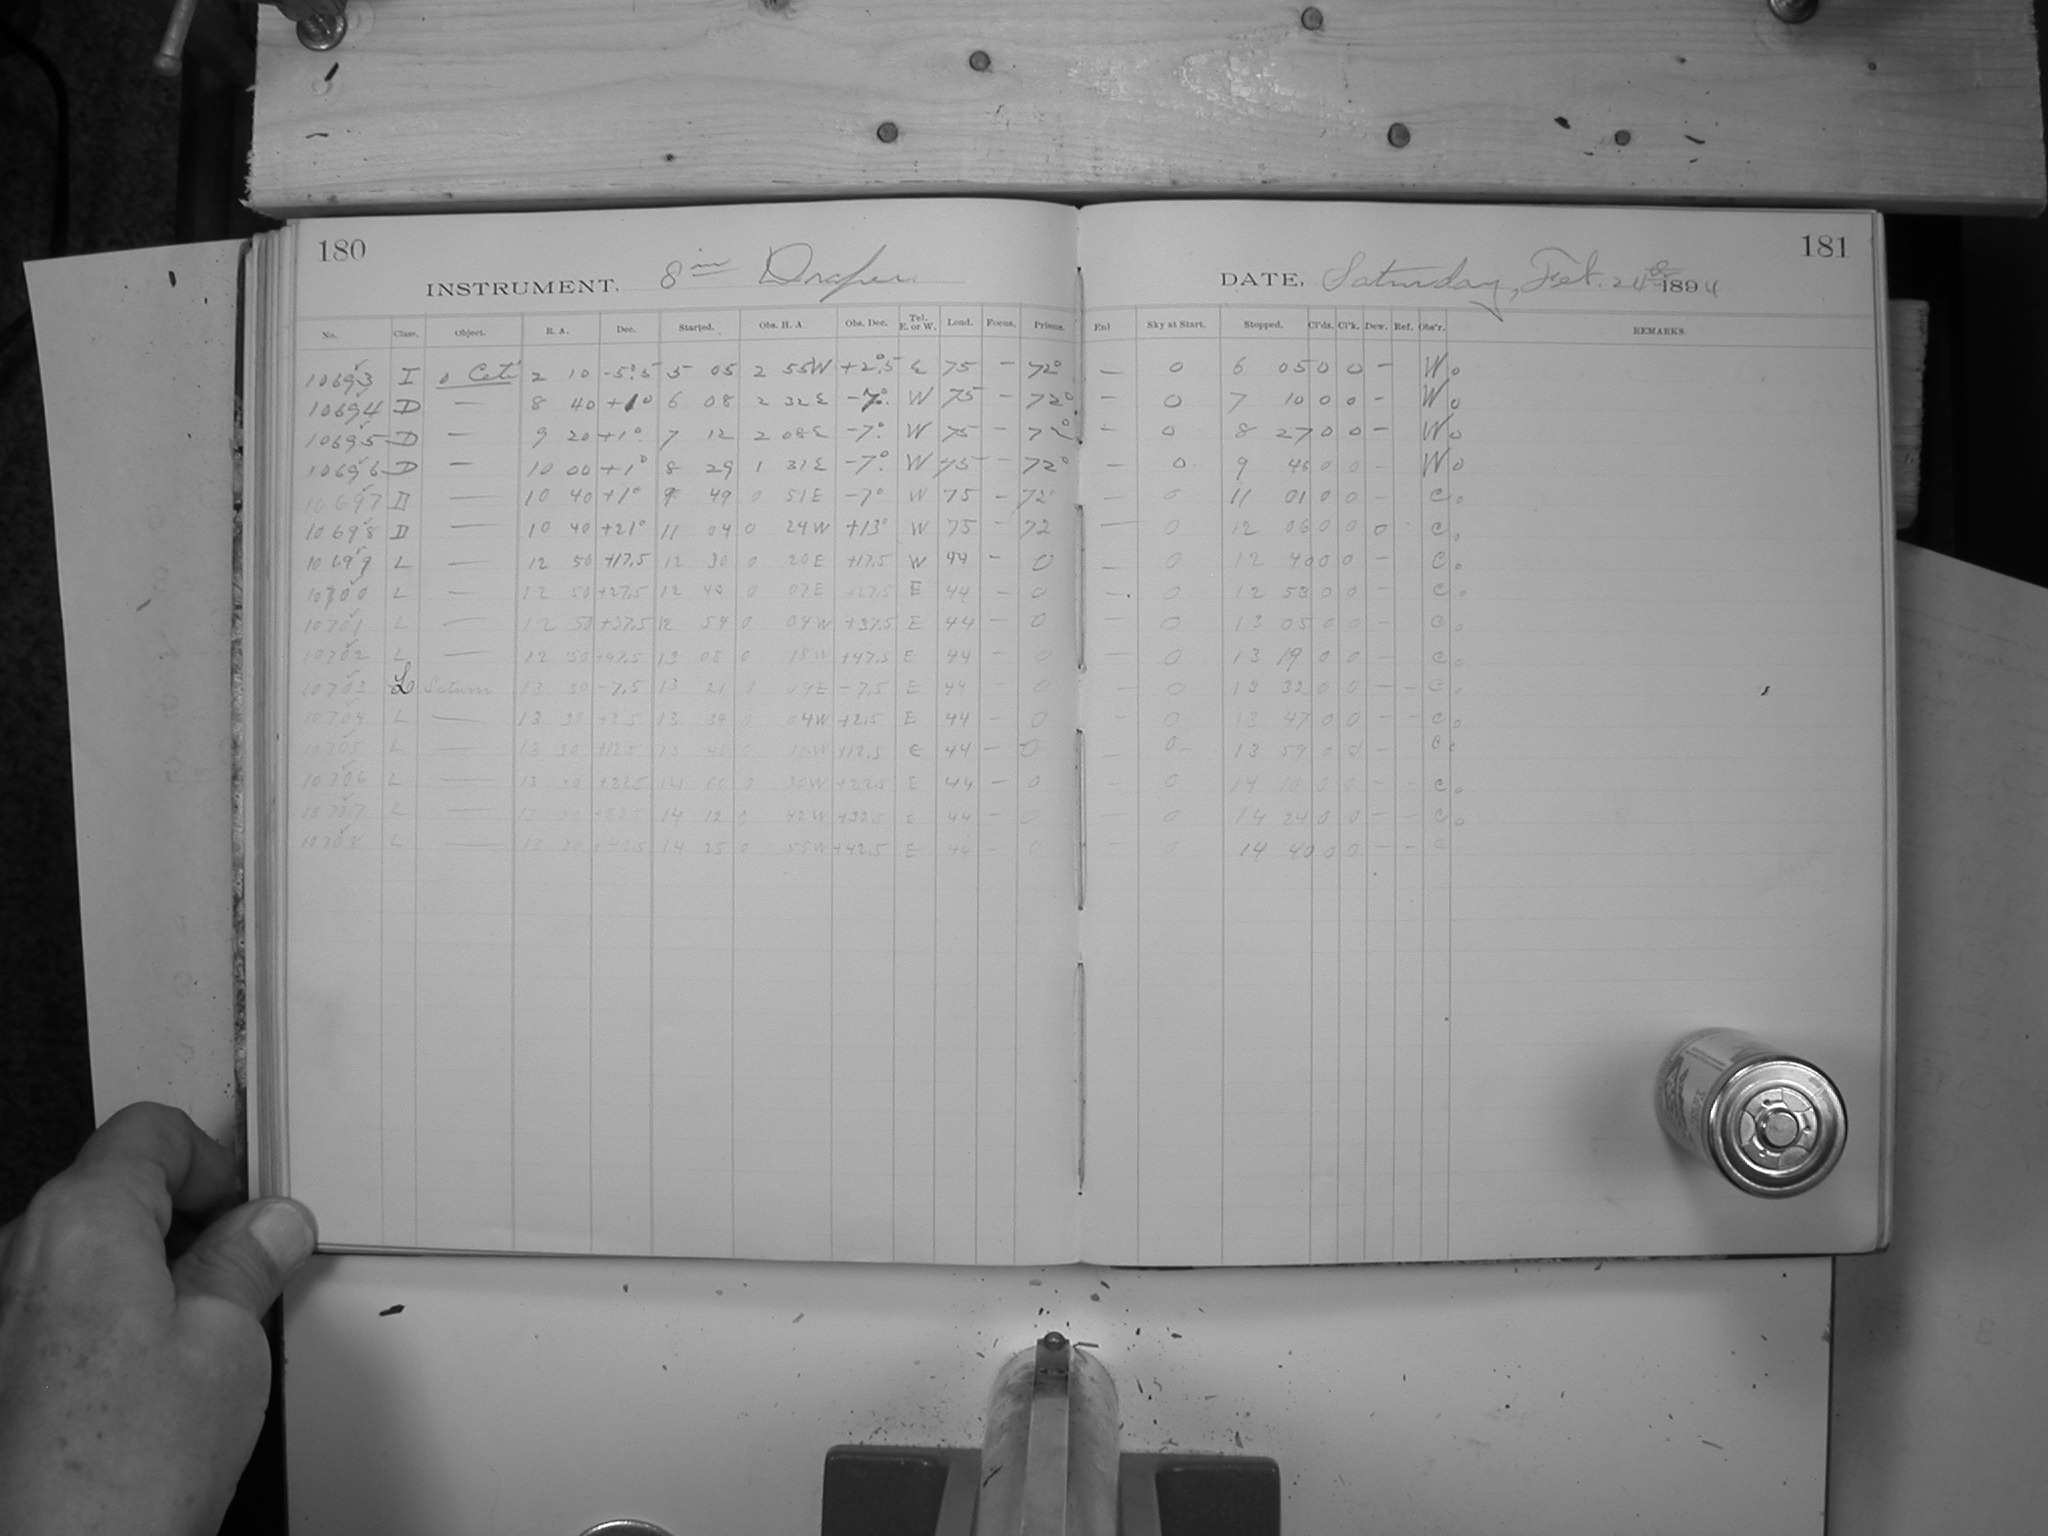 180
181
INSTRUMENT. 8 in Draper.
DATE, Saturday, Feb. 24th 1894
No. Class. Object. R. A. Dec. Started. Obs. H. A. Obs. Dec. Tel. E. or W. Lond. Focus. Prisms. Enl Sky at Start. Stopped. Cl'ds. Cl'k. Dew. Ref. Obs'r. REMARKS.
10693 I o Ceti 2 10 -5°.5 5 05 2 55W +2°.5 E 75 - 72° — 0 6 05 0 0 - W.
10694 D — 8 40 +1° 6 08 2 32E -7°. W 75 - 72° — 0 7 10 0 0 - W.
10695 D — 9 20 +1°. 7 12 2 08E -7°. W 75 - 72° — 0 8 27 0 0 - W.
10696 D — 10 00 +1° 8 29 1 31E -7°. W 75 - 72° — 0 9 46 0 0 - W.
10697 D — 10 40 +1° 9 49 0 51E -7° W 75 - 72° — 0 11 01 0 0 - C.
10698 D — 10 40 +21° 11 04 0 24W +13° W 75 - 72 — 0 12 06 0 0 0 C.
10699 L — 12 50 +17.5 12 30 0 20E +17.5 W 44 - 0 — 0 12 40 0 0 - C.
10700 L — 12 50 +27.5 12 43 0 07E +27.5 E 44 - 0 — 0 12 53 0 0 - C.
10701 L — 12 50 +37.5 12 54 0 04W +37.5 E 44 - 0 — 0 13 05 0 0 - C.
10702 L — 12 50 +47.5 13 08 0 18W +47.5 E 44 - 0 — 0 13 19 0 0 - C.
10703 L Saturn 13 30 -7.5 13 21 0 09E -7.5 E 44 - 0 — 0 13 32 0 0 - - C.
10704 L — 13 30 +2.5 13 34 0 04W +2.5 E 44 - 0 — 0 13 47 0 0 - - C.
10705 L — 13 30 +12.5 13 +12.5 E 44 - 0 — 0 13 59 0 0 - C.
10706 L — 13 30 +22.5 14 00 0 30W +22.5 E 44 - 0 — 0 14 10 0 0 - - C.
10707 L — 13 30 +32.5 14 12 0 42W +32.5 E 44 - 0 — 0 14 24 0 0 - - C.
10708 L — 13 30 +42.5 14 25 0 55W +42.5 E 44 - 0 — 0 14 40 0 0 - - C